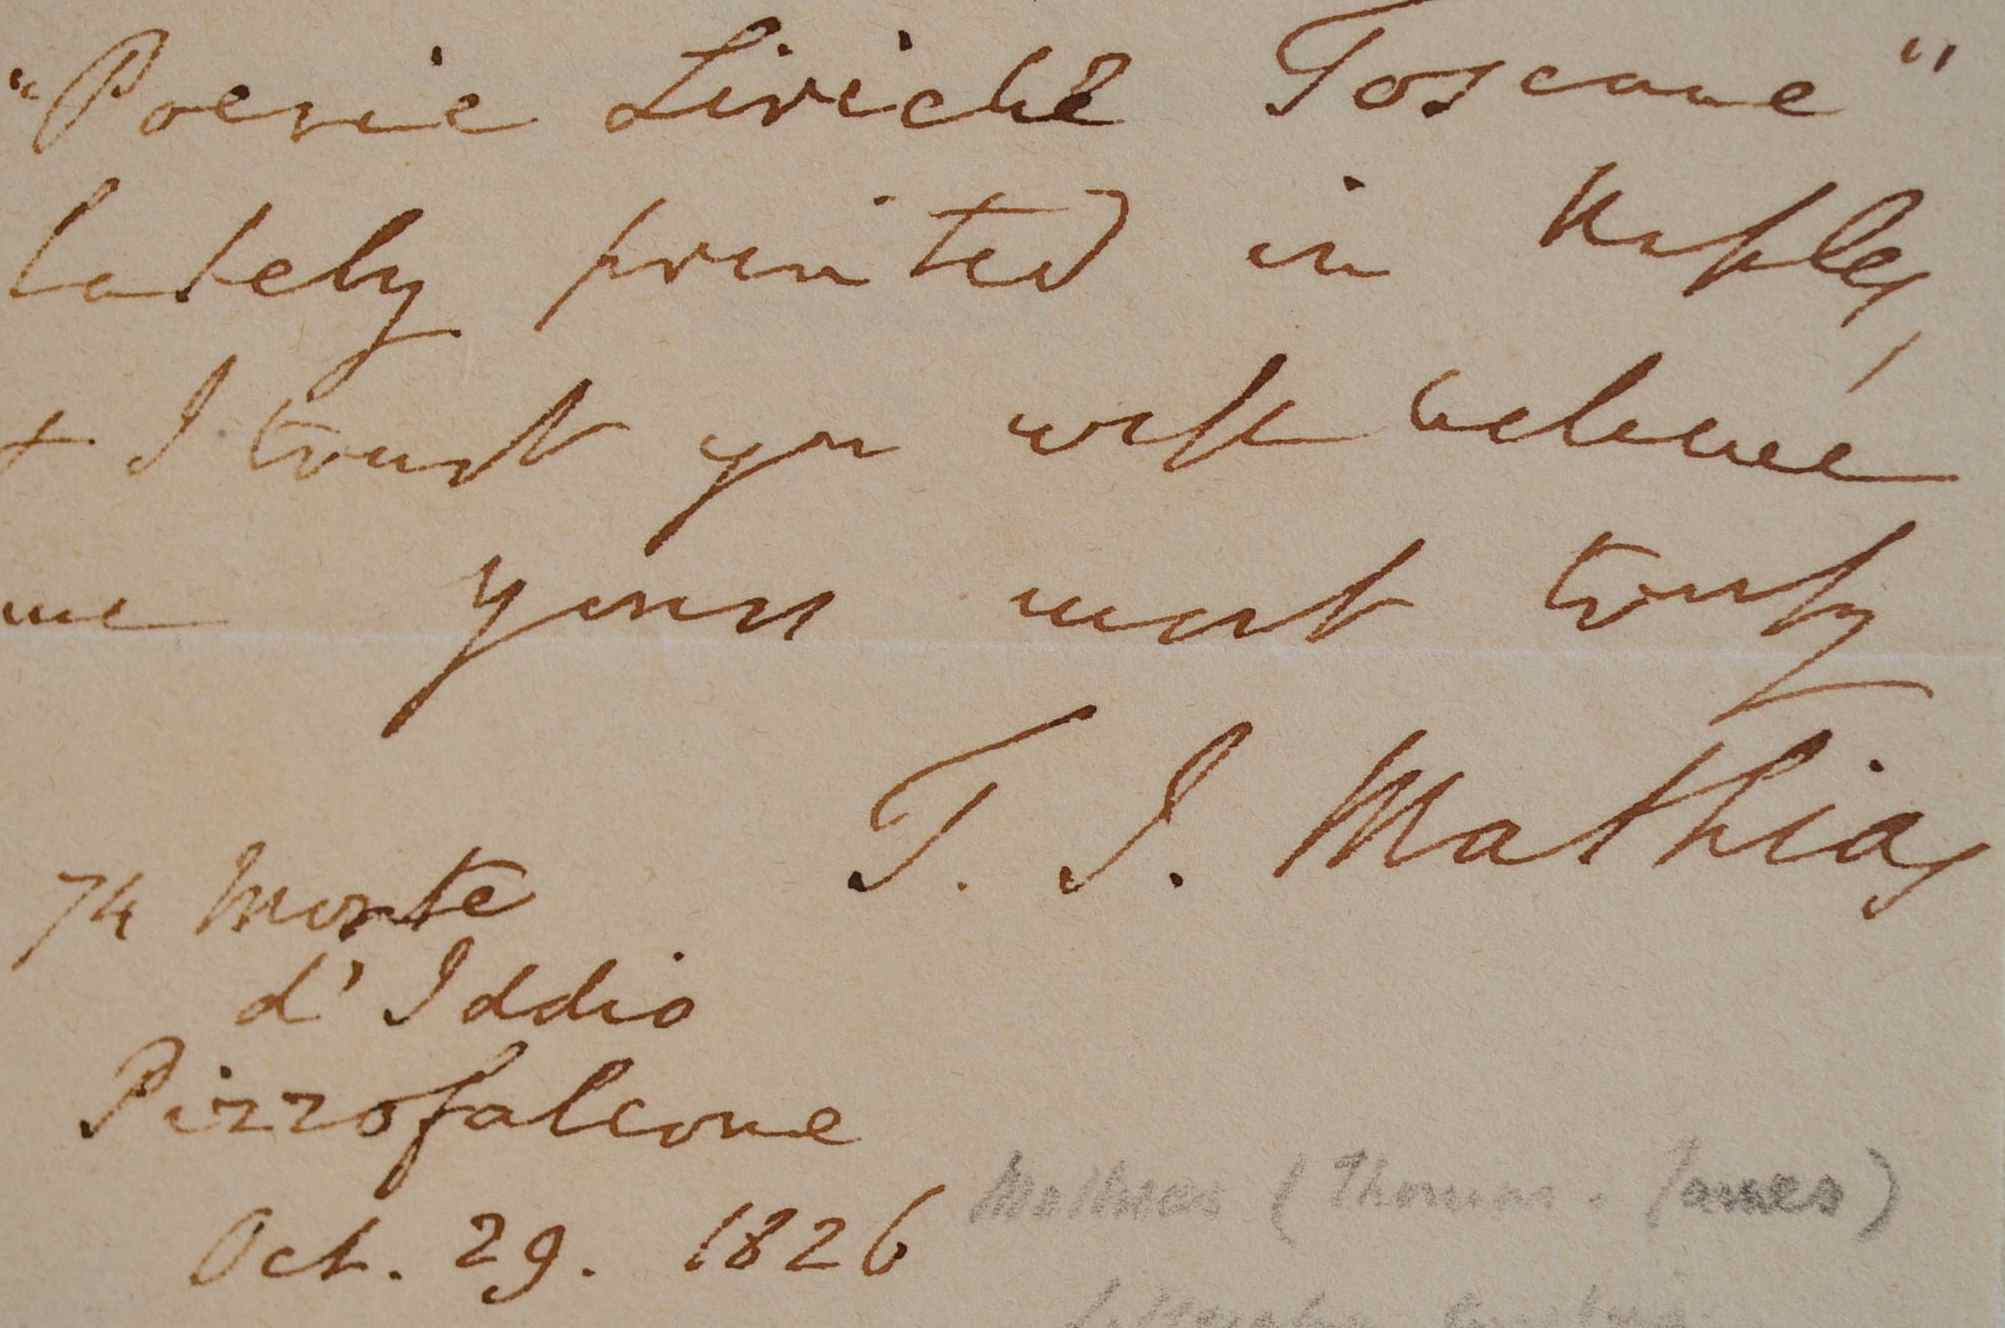 "Poesie Liriche Toscane"
lately printed in Naples,
+ I trust you will believe
me yours most truly
T. J. Mathias
74 Monte
d'Iddio
Pizzofalcone
Oct. 29. 1826
Mathias (Thomas. James)